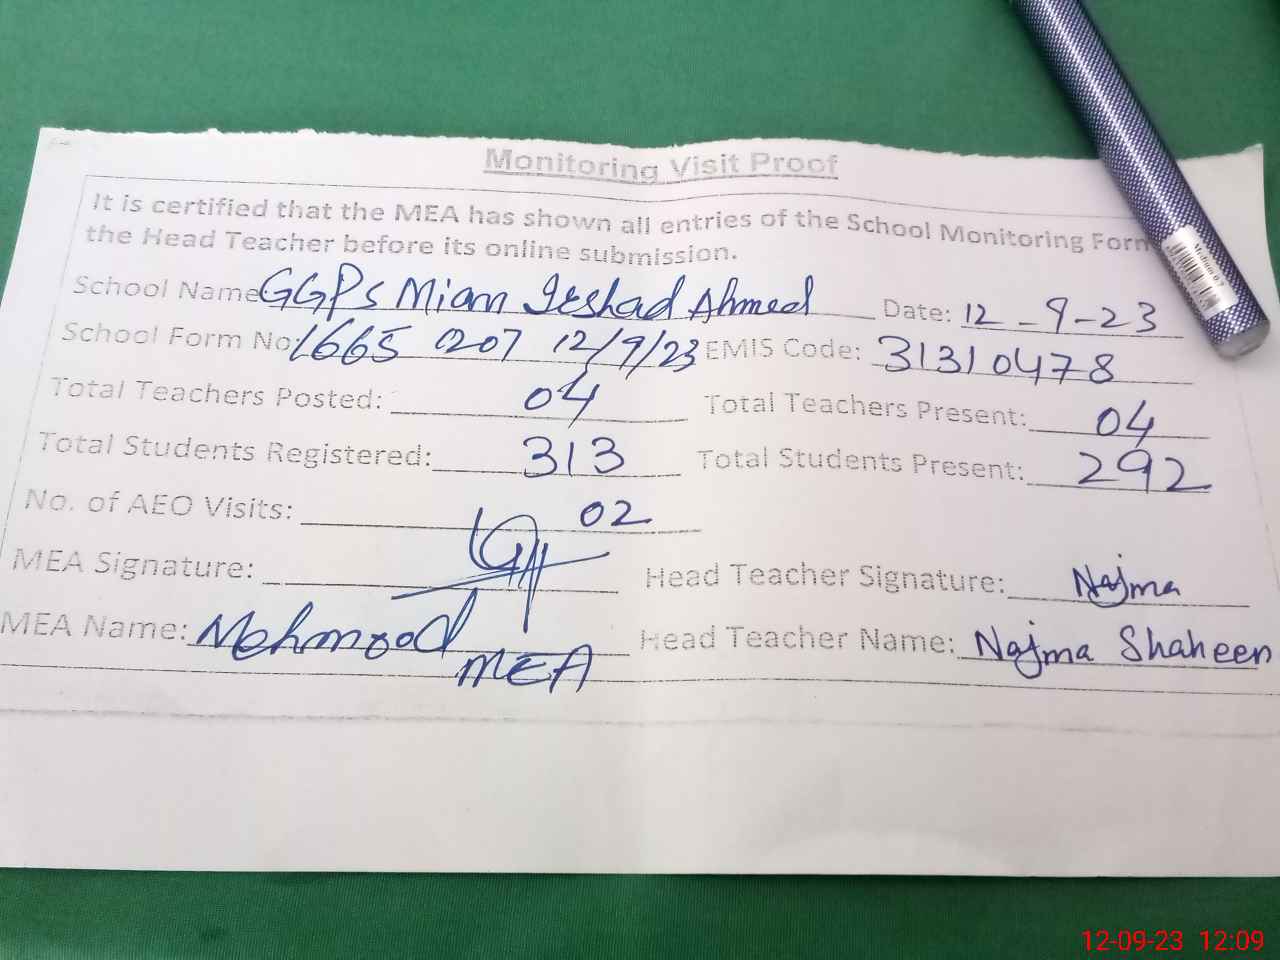 Monitoring Visit Proof
It is certified that the MEA has shown all entries of the School Monitoring Form
the Head Teacher before its online submission.
School Name GGPS Mian Irshad Ahmed Date: 12-9-23
School Form No 1665 0207 12/9/23 EMIS Code: 31310478
Total Teachers Posted: 04 Total Teachers Present: 04
Total Students Registered: 313 Total Students Present: 292
No. of AEO Visits: 02
MEA Signature: Head Teacher Signature: Najma
MEA Name: Mehmood Head Teacher Name: Najma Shaheen
MEA
Medium 0.7
12-09-23 12:09